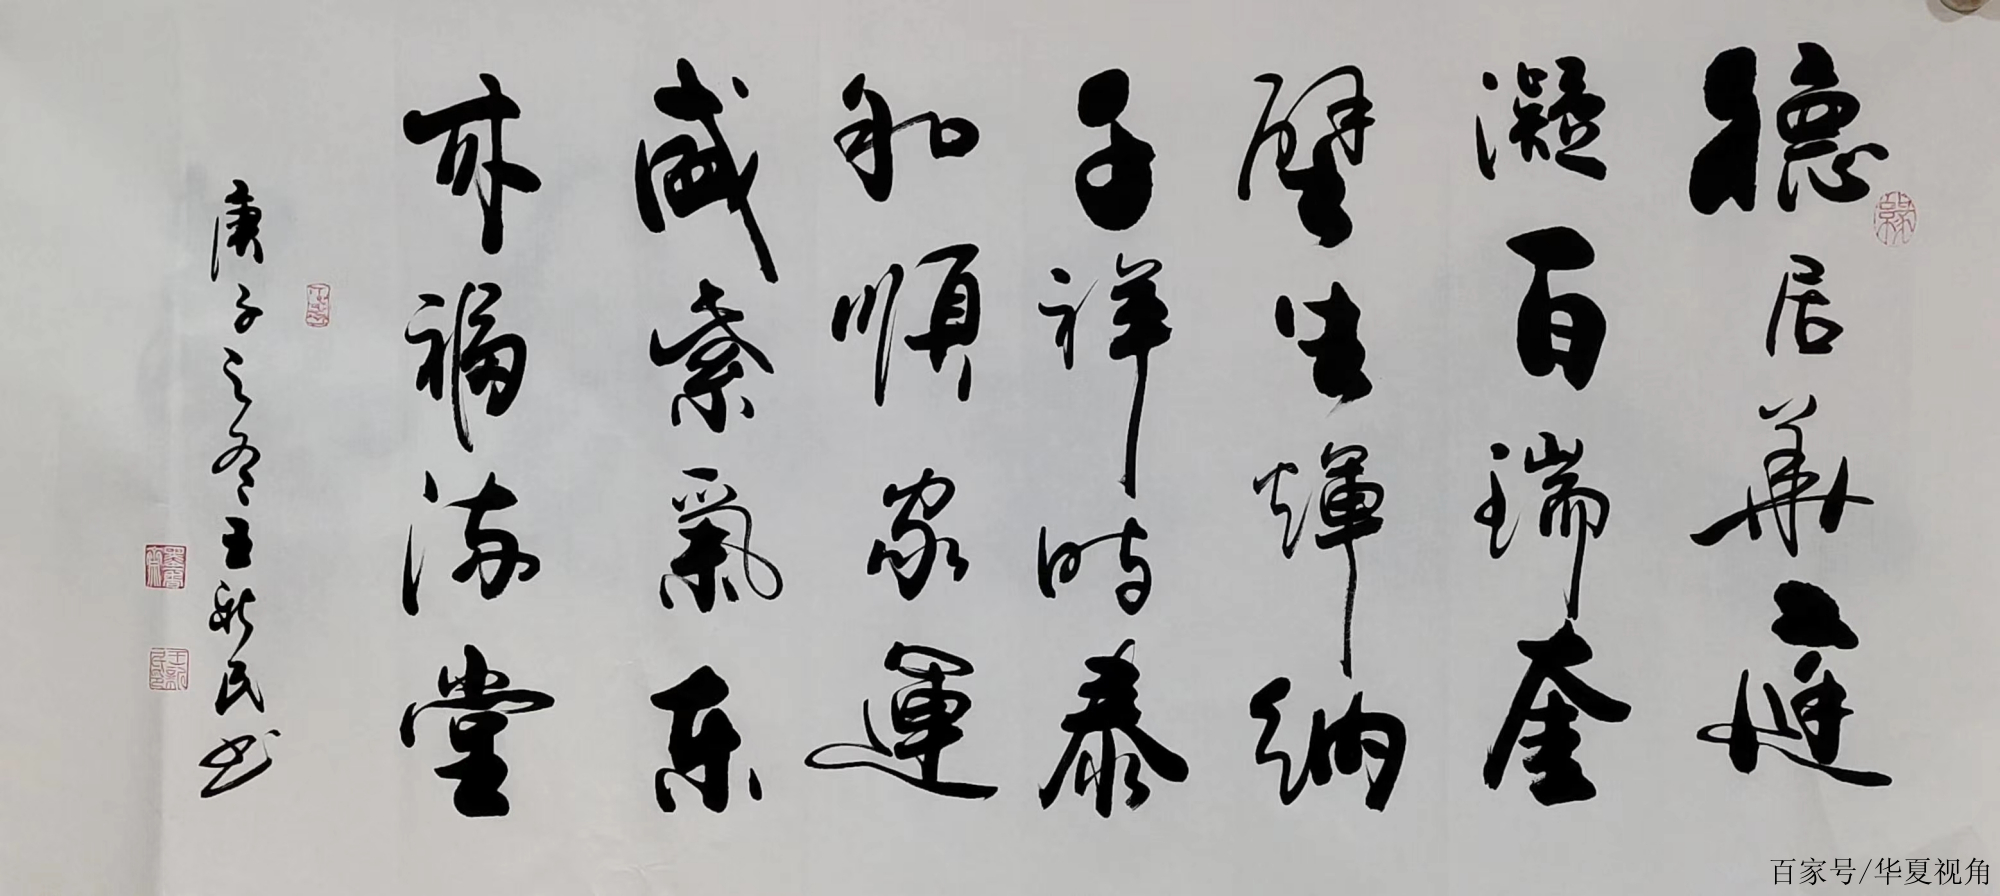 德居華庭
凝百瑞奎
壁生輝納
千祥時泰
和順家運
盛紫氣東
來福滿堂
庚子之冬王新民书
百家号/华夏视角